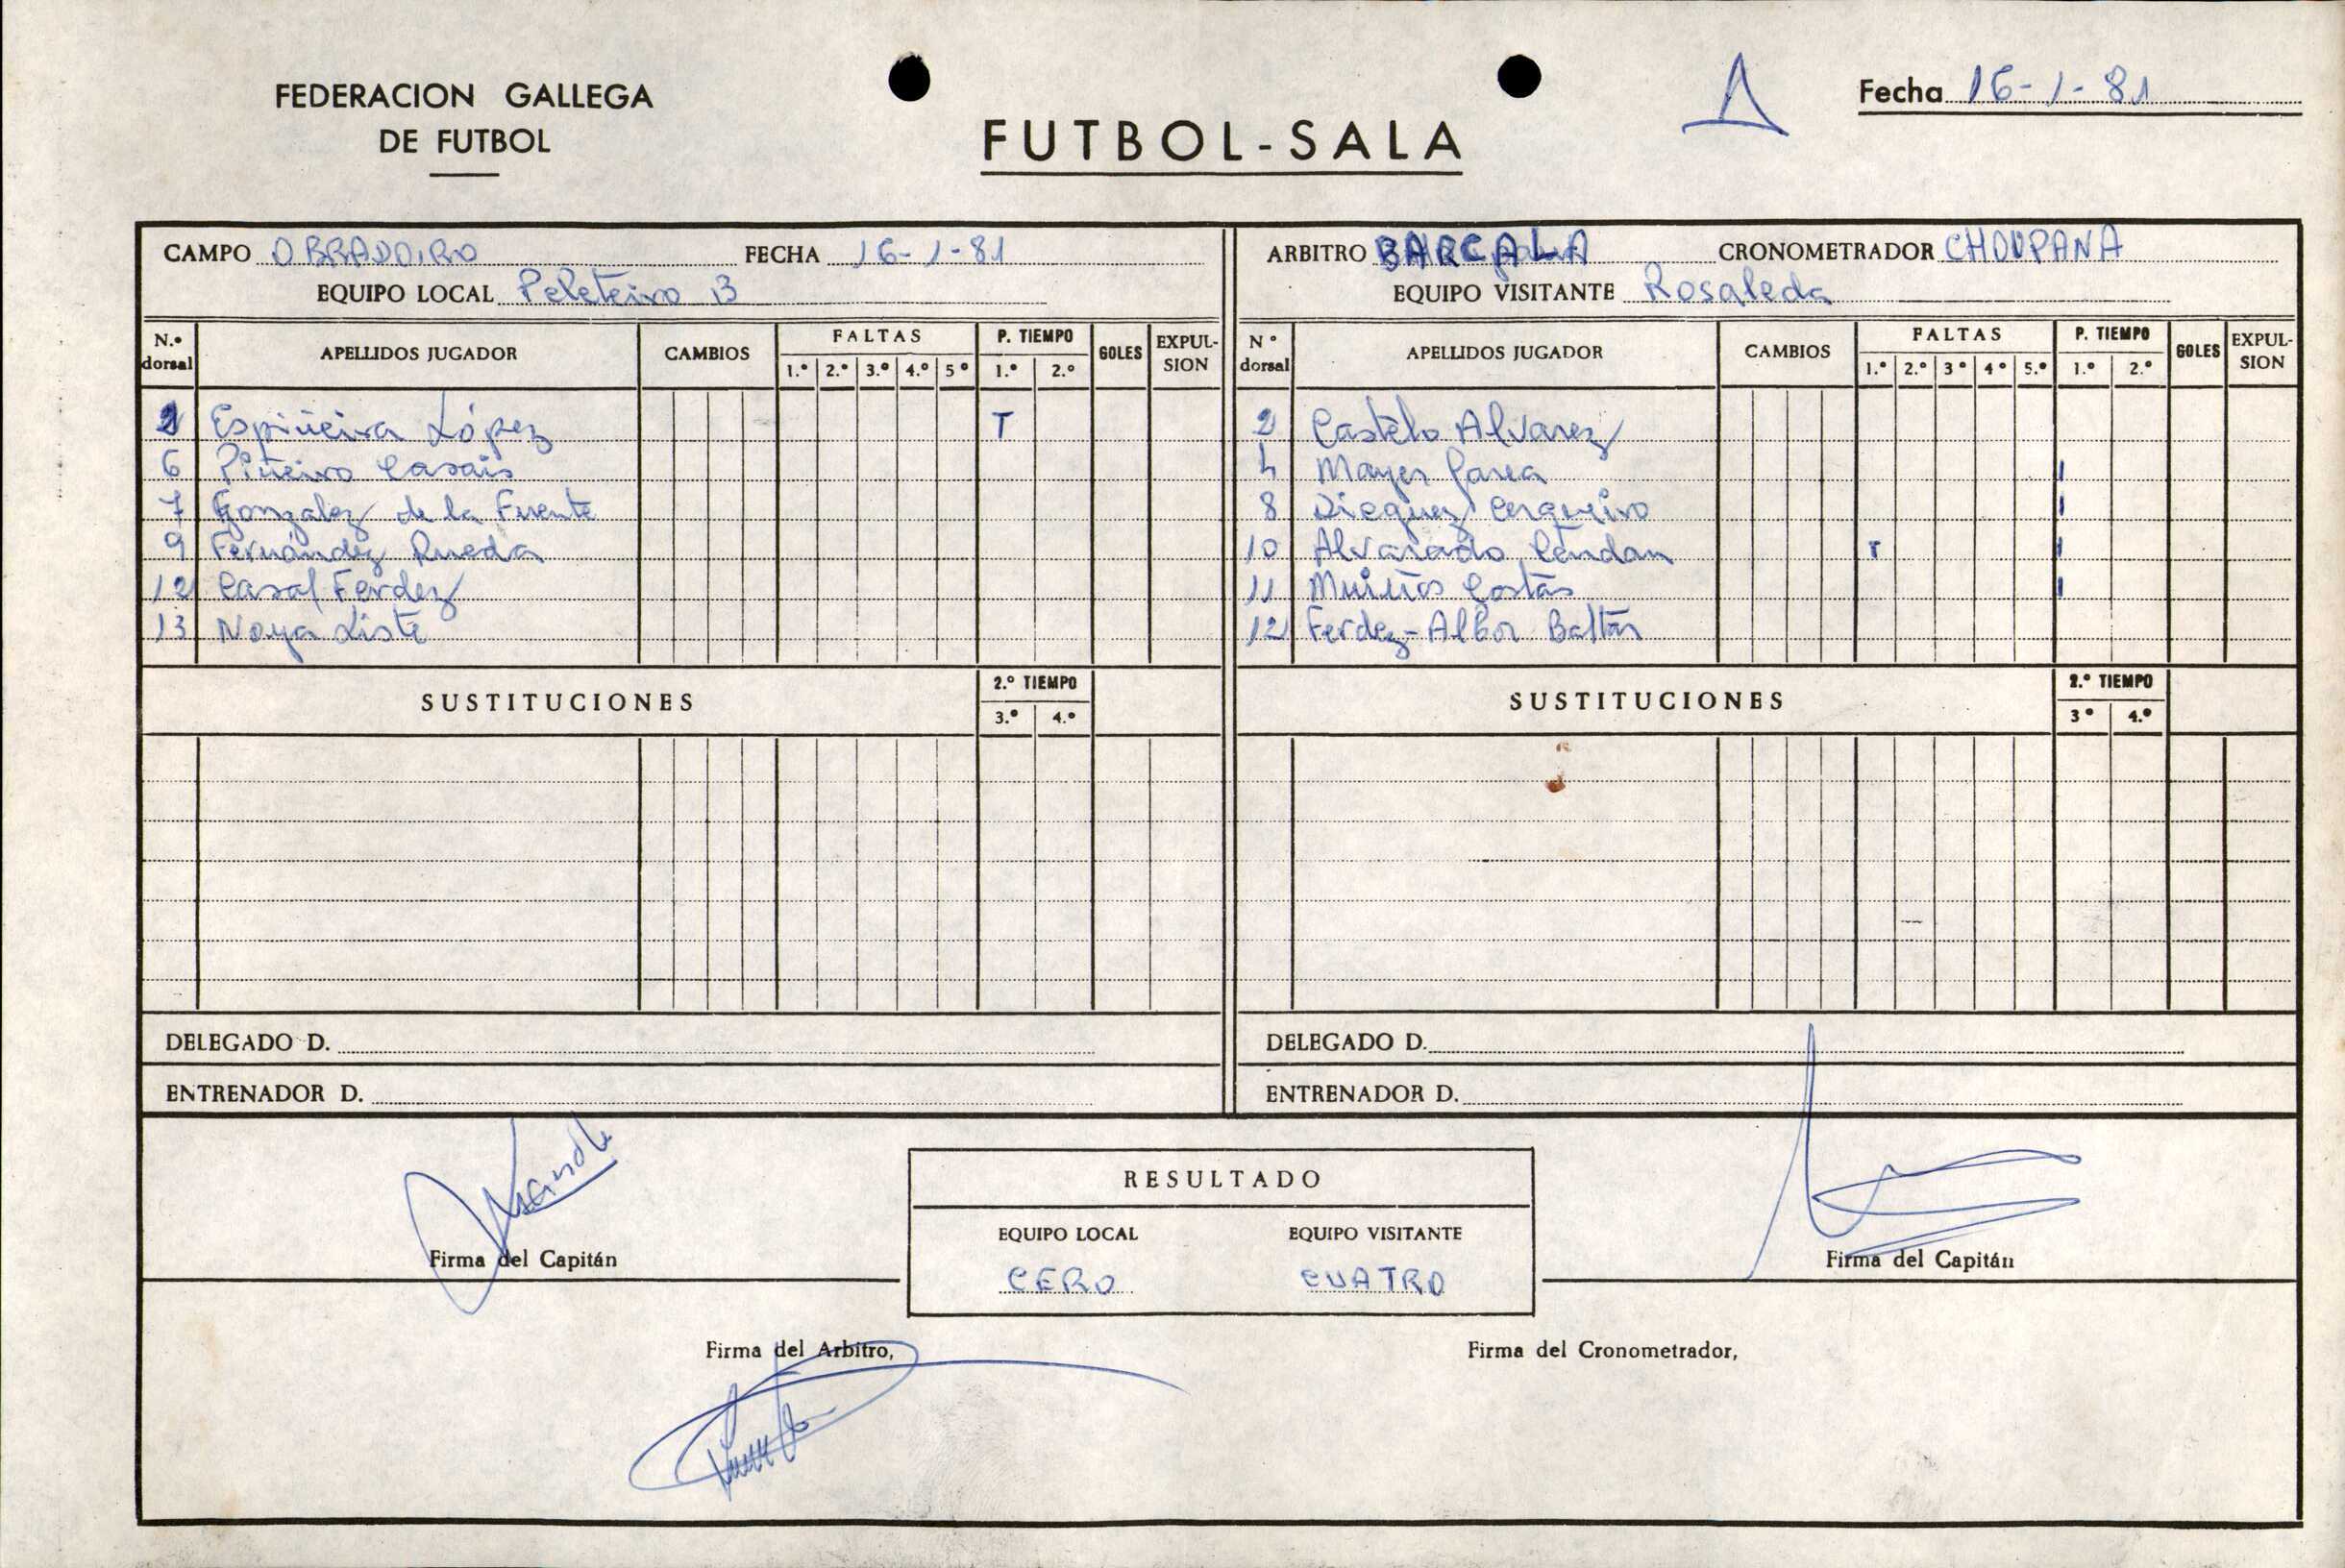 FEDERACION GALLEGA
DE FUTBOL
FUTBOL-SALA
Fecha 16-1-81
CAMPO OBRADOIRO FECHA 16-1-81
EQUIPO LOCAL Peleteiro B
N.º dorsal APELLIDOS JUGADOR CAMBIOS FALTAS 1.º 2.º 3.º 4.º 5º P. TIEMPO 1.º 2.º GOLES EXPUL-SION
2 Espiñeira López T
6 Piñeiro Casais
7 Gonzalez de la Fuente
9 Fernández Rueda
12 Casal Ferdez
13 Noya Liste
SUSTITUCIONES 2.º TIEMPO 3.º 4.º
DELEGADO D.
ENTRENADOR D.
ARBITRO BARCALA CRONOMETRADOR CHOUPANA
EQUIPO VISITANTE Rosaleda
Nº dorsal APELLIDOS JUGADOR CAMBIOS FALTAS 1.º 2.º 3º 4º 5.º P. TIEMPO 1.º 2.º GOLES EXPUL-SION
2 Castelo Alvarez
4 Mayer 1
8 Dieguez Cerqueiro 1
10 Alvarado Pendan T 1
11 Muiños Costas 1
12 Ferdez-Albor Baltar
SUSTITUCIONES 2.º TIEMPO 3º 4.º
DELEGADO D.
ENTRENADOR D.
Firma del Capitán
RESULTADO
EQUIPO LOCAL EQUIPO VISITANTE
CERO CUATRO
Firma del Capitán
Firma del Arbitro,
Firma del Cronometrador,